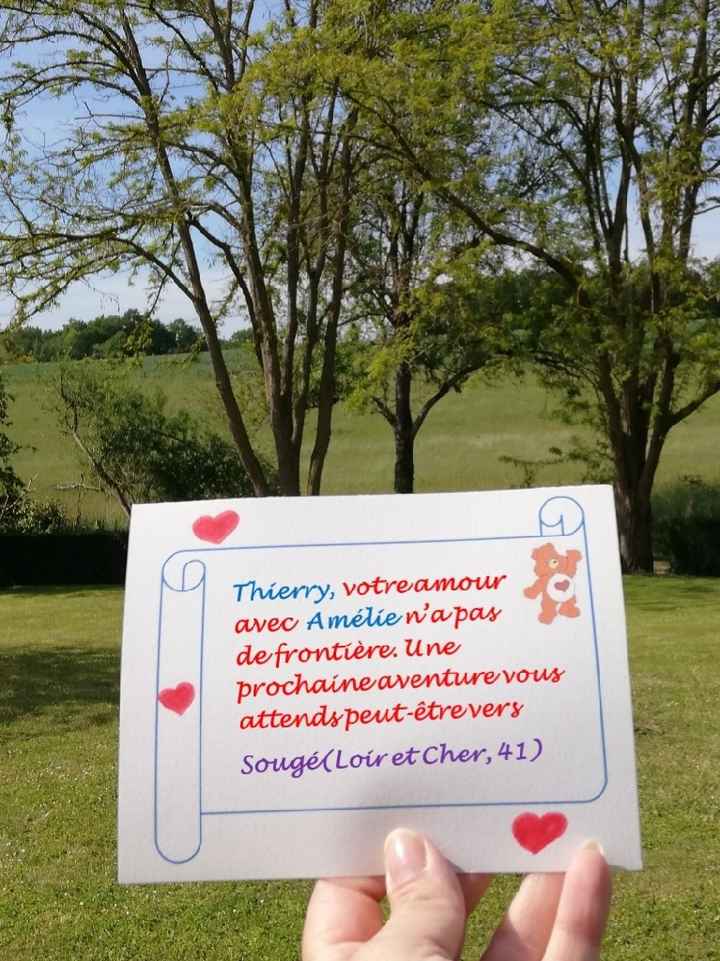 Thierry, votre amour
avec Amélie n'a pas
de frontière. Une
prochaine aventure vous
attends peut-être vers
Sougé (Loir et Cher, 41)